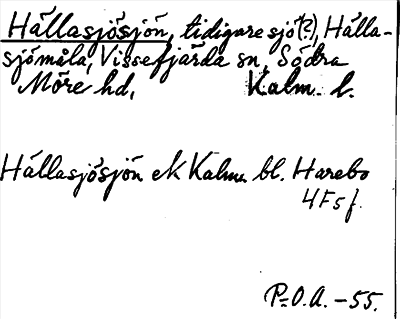 Hällasjösjön, tidigare sjö(?), Hälla-
sjömåla, Vissefjärda sn, Södra
Möre hd, Kalm. l.
Hällasjösjön ek Kalm. bl. Harebo
4F5f.
P.O.A. -55.